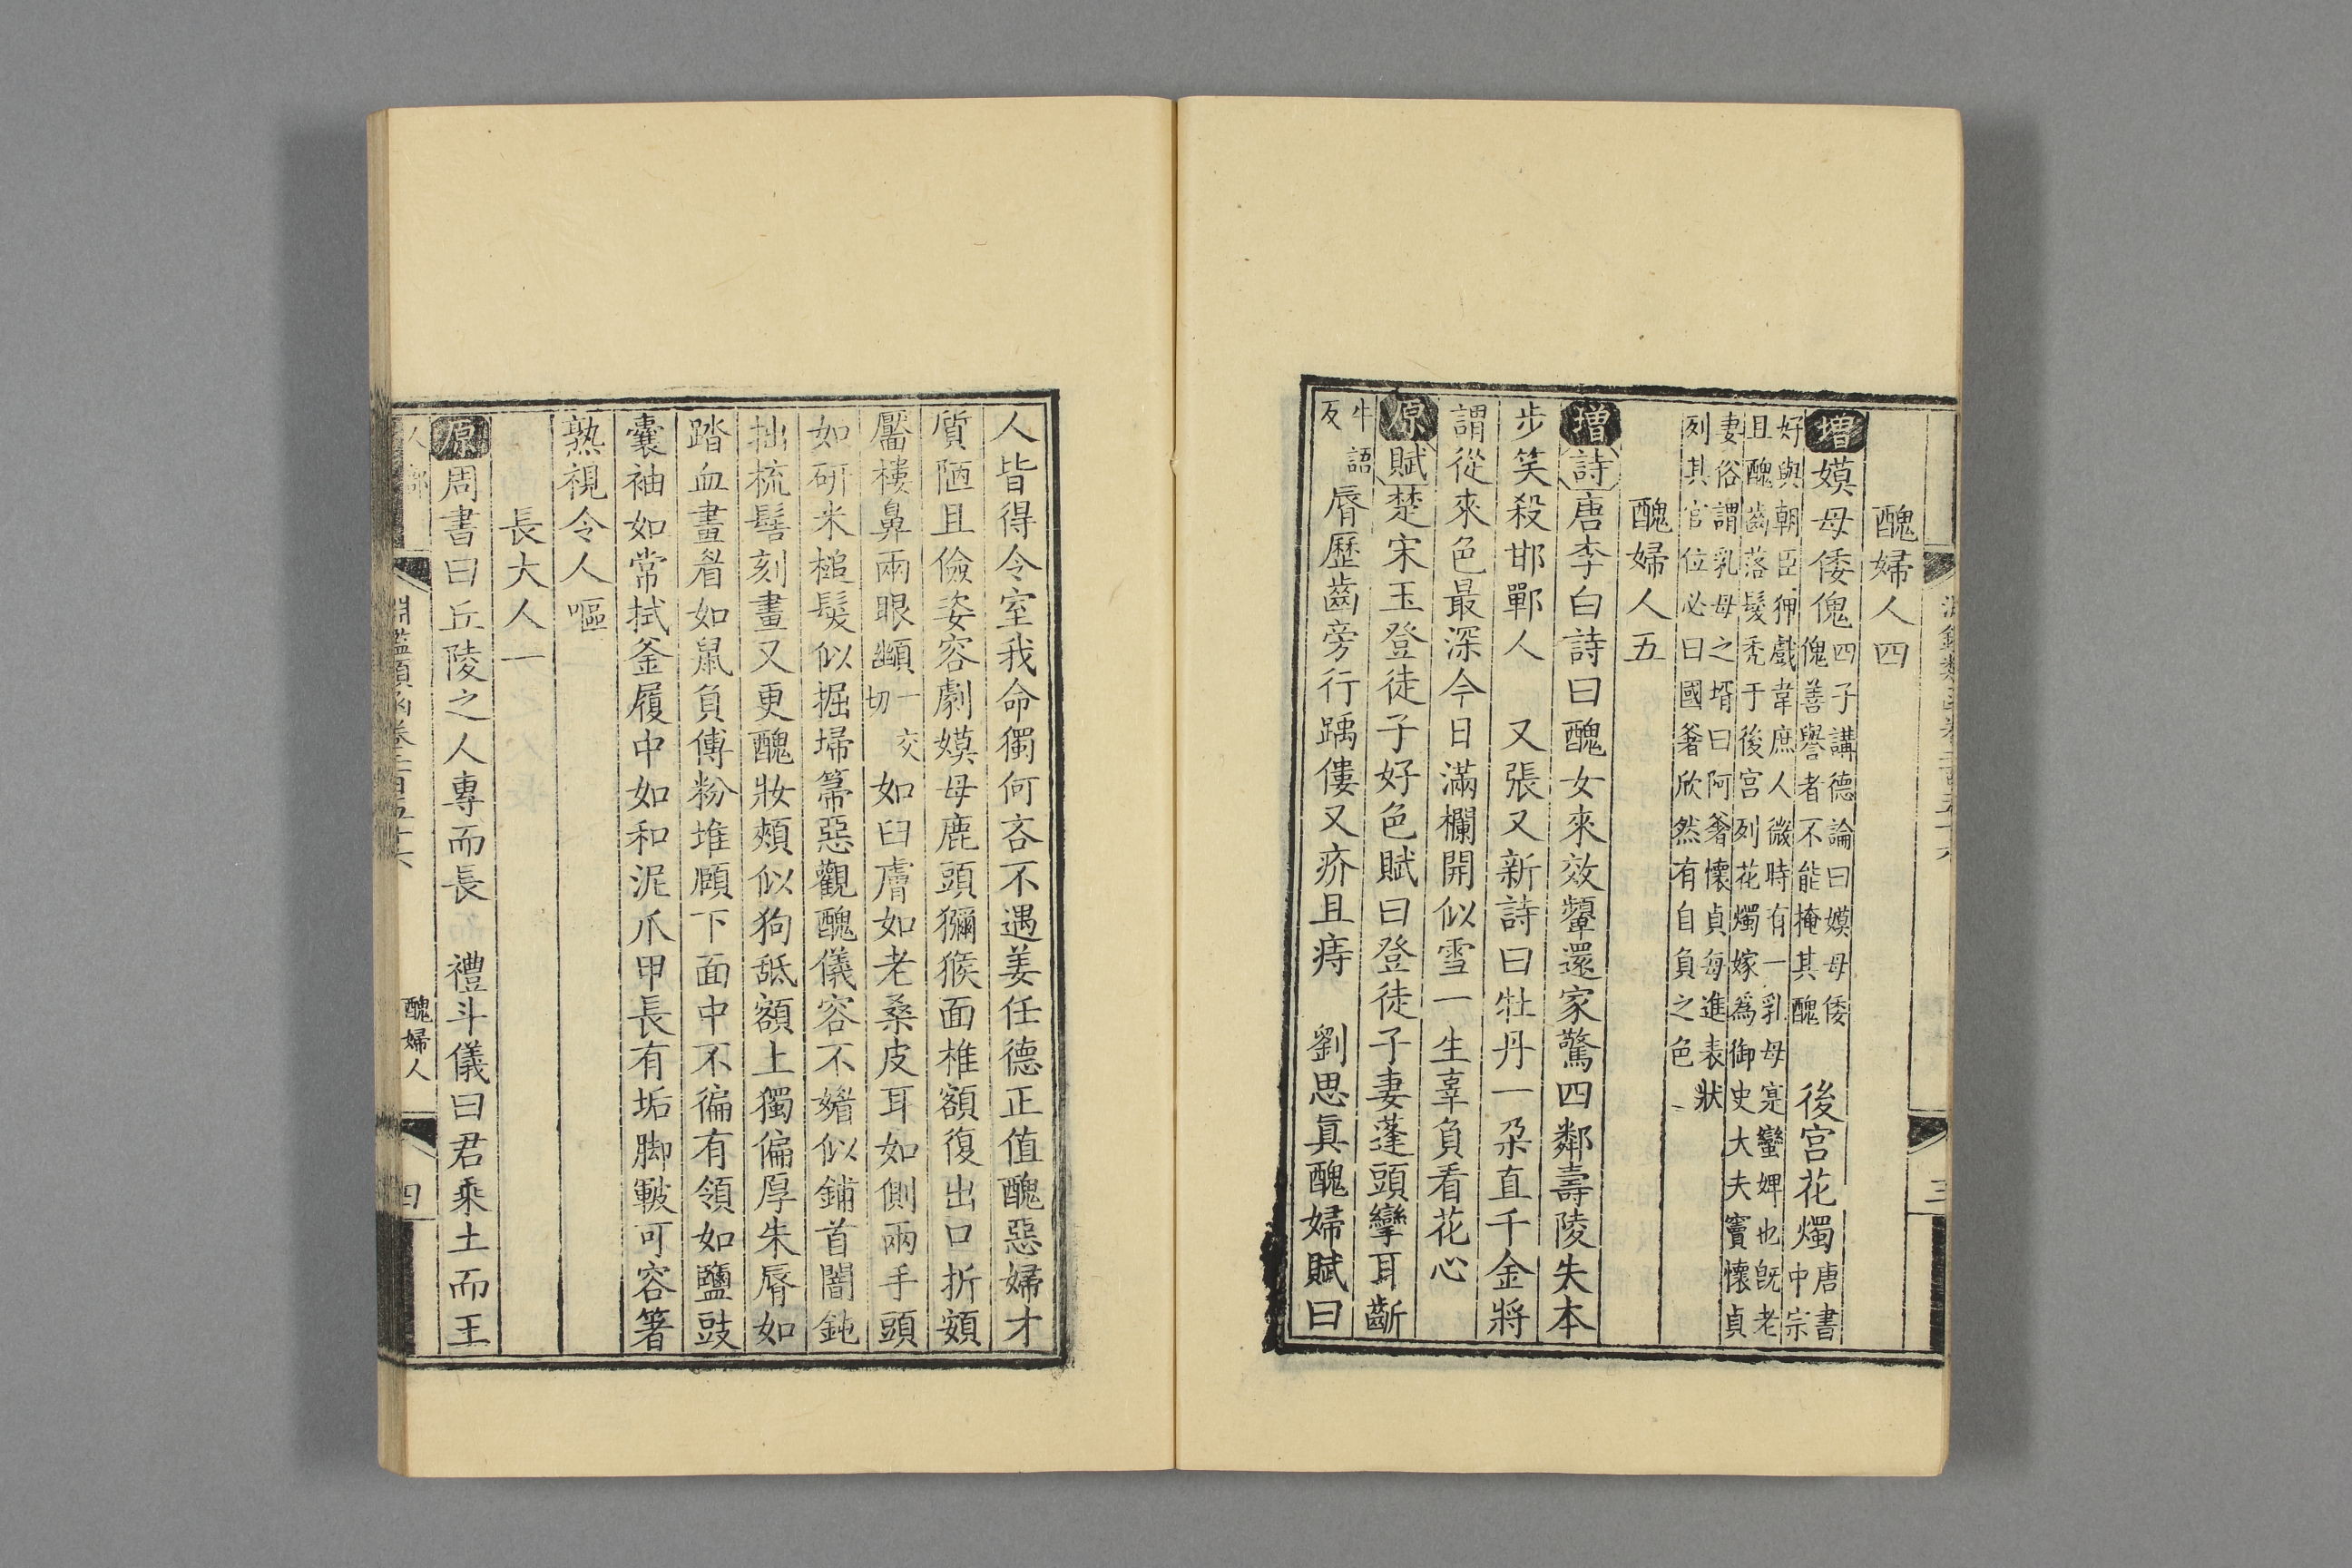 醜婦人四
增嫫母倭傀四子講德論曰嫫母倭傀善譽者不能掩其醜後宮花燭唐書中宗
好與朝臣狎戲韋庶人微時有一乳母寔蠻婢也旣老且醜齒落髮禿于後宮列花燭嫁為御史大夫竇懷貞
妻俗謂乳母之壻曰阿㸙懷貞每進表狀列其官位必曰國㸙欣然有自負之色
醜婦人五
增詩唐李白詩曰醜女來效顰還家驚四鄰壽陵失本
步笑殺邯鄲人 又張又新詩曰牡丹一朶直千金將
謂從來色最深今日滿欄開似雪一生辜負看花心
原賦楚宋玉登徒子好色賦曰登徒子妻蓬頭攣耳齞
牛語反脣歷齒旁行踽僂又疥且痔 劉思眞醜婦賦曰
人皆得令室我命獨何吝不遇姜任德正值醜惡婦才
質陋且儉姿容劇嫫母鹿頭獼猴面椎額復出口折頞
靨樓鼻兩眼䫜一交切如臼膚如老桑皮耳如側兩手頭
如研米槌髮似掘埽箒惡觀醜儀容不媘似鋪首闇鈍
拙梳髻刻畫又更醜妝頰似狗舐額上獨偏厚朱脣如
踏血畫眉如鼠負傅粉堆頤下面中不徧有領如鹽豉
囊袖如常拭釜履中如和泥爪甲長有垢脚皸可容箸
熟視令人嘔
長大人一
原周書曰丘陵之人專而長 禮斗儀曰君乘土而王
醜婦人
四